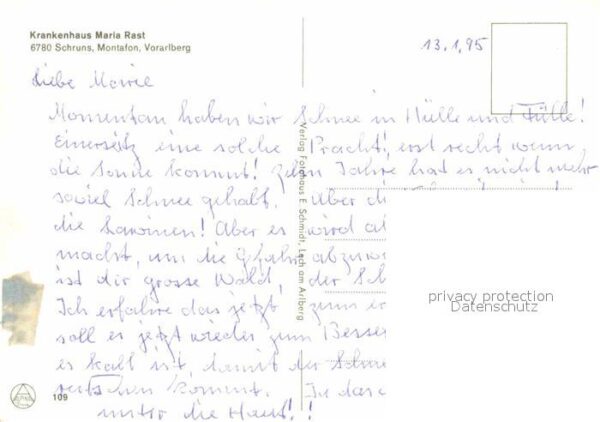 Krankenhaus Maria Rast
6780 Schruns, Montafon, Vorarlberg
13.1.95
Liebe
Momentan haben wir Schnee in Hülle und Fülle!
Einerseitz eine solche Pracht! erst recht wenn
die Sonne kommt! Zehn Jahre hat es nicht mehr
soviel Schnee gehabt. Über di
die Lawinen! Aber es wird al
macht, um die Gfahr abzuw
ist dir grosse Wald, der Sch
Ich erfahre das jetzt zum er
soll es jetzt wieder zum Besser
es kalt ist, damit der Schne
rutschen kommt. In das
unter die Haut!!
Verlag Fotohaus E. Schmidt, Lech am Arlberg
privacy protection
Datenschutz
109